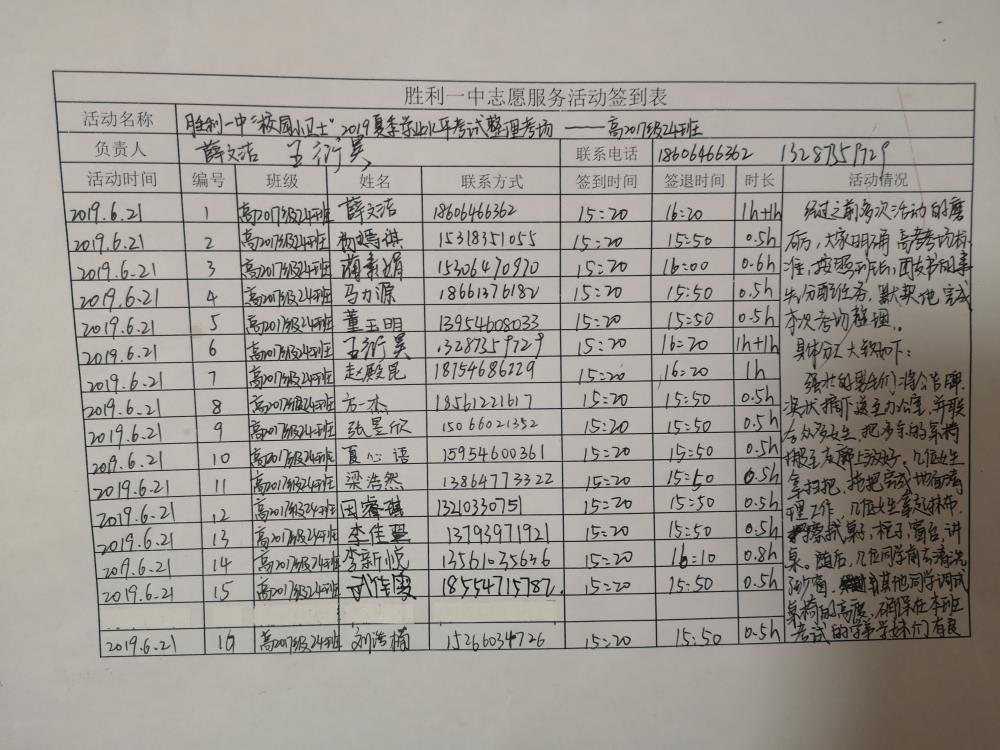 胜利一中志愿服务活动签到表
活动名称 胜利一中"校园小卫士"2019夏季学业水平考试整理考场——高2017级24班
负责人 薛文洁 王衍昊 联系电话 18606466362 13287359729
活动时间 编号 班级 姓名 联系方式 签到时间 签退时间 时长 活动情况
2019.6.21 1 高2017级24班 薛文洁 18606466362 15:20 16:20 1h+1h 经过之前多次活动的磨
2019.6.21 2 高2017级24班 15318351055 15:20 15:50 0.5h 砺后,大家明确高考考场标
2019.6.21 3 高2017级24班 15306470970 15:20 16:00 0.6h 准,按照班长,团支书的事
2019.6.21 4 高2017级24班 马力源 18661376182 15:20 15:50 0.5h 先分配任务,默契地完成
2019.6.21 5 高2017级24班 董玉明 13954608033 15:20 15:50 0.5h 本次考场整理。
2019.6.21 6 高2017级24班 王衍昊 13287359729 15:20 16:20 1h+1h 具体分工大致如下:
2019.6.21 7 高2017级24班 赵殿昆 18754686229 15:20 16:20 1h 强壮的男生们将公告牌
2019.6.21 8 高2017级24班 方一杰 18561221617 15:20 15:50 0.5h 奖状摘下送至办公室,并联
2019.6.21 9 高2017级24班 张昱欣 15066021352 15:20 15:50 0.5h 合众多女生,把多余的桌椅
2019.6.21 10 高2017级24班 夏心语 15954600361 15:20 15:50 0.5h 搬至走廊上放好,几位女生
2019.6.21 11 高2017级24班 梁浩然 13864773322 15:20 15:50 0.5h 拿扫把,拖把完成地面清
2019.6.21 12 高2017级24班 田睿琪 13210330751 15:20 15:50 0.5h 理工作,几位女生拿起抹布
2019.6.21 13 高2017级24班 李佳 13793971921 15:20 15:50 0.5h 擦拭桌子,柜子,窗台,讲
2019.6.21 14 高2017级24班 李新悦 13561035636 15:20 16:10 0.8h 桌。随后,几位同学前去清洗
2019.6.21 15 高2017级24班 18554715787 15:20 15:50 0.5h 纱窗,其他同学调试
桌椅的高度,确保在本班
2019.6.21 16 高2017级24班 刘浩楠 15266034726 15:20 15:50 0.5h 考试的学弟学妹们有良